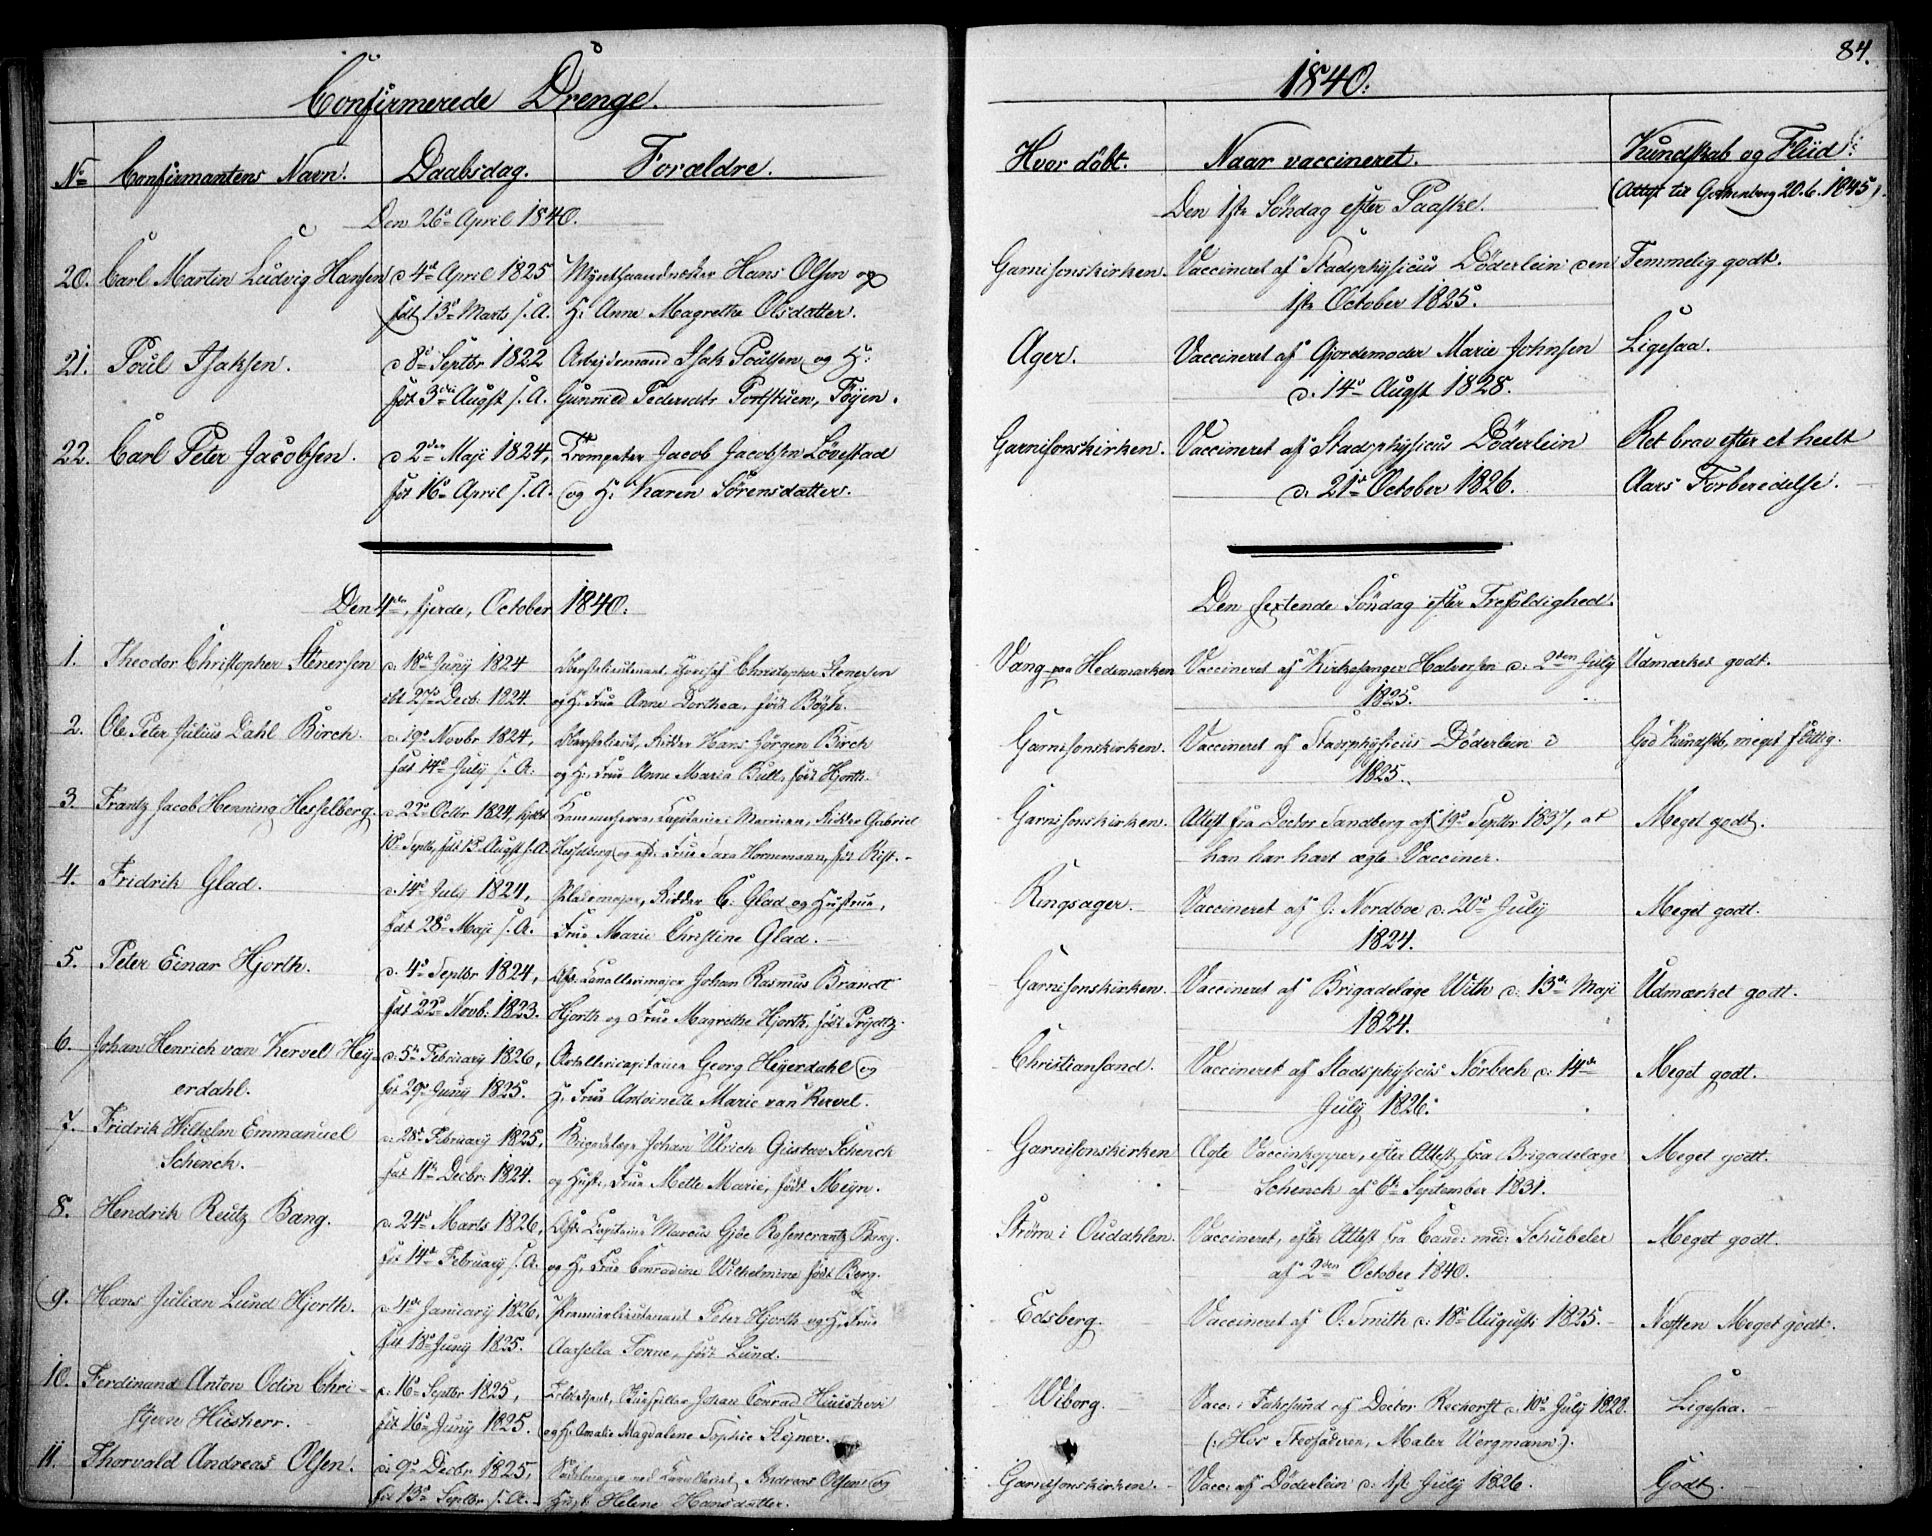 Confirmerede Drenge.
No Confirmantens Navn. Daabsdag. Forældre.
Den 26de April 1840.
20. Carl Martin Ludvig Hansen d 4de April 1825 Myntsvandnester Hans Olsen og
fdt 13de Marts s. A. H. Anne Magrethe Olsdatter.
21. Poul Isaksen. d 8de Septbr 1822 Arbeidsmand Isak Poulsen og H.
fdt 3die Augst s. A. Gunnild Pedersdtr Portstuen, Tøyen.
22. Carl Peter Jacobsen. d 2den Maji 1824, Trompeter Jacob Jacobsen Løvestad
fdt 16de April s. A. og H. Karen Sørensdatter.
Den 4de, fjerde, October 1840.
1. Theodor Christopher Stenersen d. 18de Juny 1824 Oberstelieutenant Christopher Stenersen
27de Decb: 1824. og H. Frue Anne Dorthea, født Bøgh.
2. Ole Peter Julius Dahl Birch. d. 19de Novbr 1824, Oberstelieut, Ridder Hans Jørgen Birch
fdt 14de July s. A. og H. Frue Anne Maria Bull, født Hjorth.
3. Frantz Jacob Henning Hesselberg. d. 22de Octbr 1824, hjdbt Kammerherre, Capitain i Marinen, Ridder Gabriel
10de Septb, fdt 13de Augst s. A. Hesselberg og afd. Frue Sara Hornemann, født Rist.
4. Fridrik Glad. d. 14de July 1824, Pladsmajor, Ridder C. Glad og Hustrue,
fdt 28de Maji s. A. Frue Marie Christine Glad.
5. Peter Einar Hjorth. d. 4de Septbr 1824, Afd. Cavallerimajor Johan Rasmus Brandt
fdt 22de Novb: 1823. Hjorth og Frue Magrethe Hjorth, født Prydtz.
6. Johan Henrich van Kervel Hey- d. 5te February 1826, Artillericapitain Georg Heyerdahl og
erdahl. fdt 29de Juny 1825. H. Frue Antoinette Marie van Kervel.
7. Fridrik Wilhelm Emmanuel d. 28de February 1825, Brigadelæge Johan Ulrich Gustav Schenck
Schenck. fdt 11te Decbr: 1824. og Hust., Frue Mette Marie, født Meyn.
8. Hendrik Reutz Bang. d. 24de Marts 1826, Afd. Capitain Marcus Gjøe Rosencrantz Bang.
fdt 14de February s. A. og H. Frue Conradine Wilhelmine født Berg.
9. Hans Julian Lund Hjorth. d. 4de January 1826, Premierlieutenant Peter Hjorth og H. Frue
fdt 18de Juny 1825. Tonne, født Lund.
10. Ferdinand Anton Odin Chri- d. 16de Septbr 1825, Johan Conrad Huusherr
stjern Husherr. fdt 16de Juny 1825. og H. Amalie Magdalene Sophie Steyner.
11. Thorvald Andreas Olsen. d. 9de Decbr 1825, Sadelmager ved Cavalleriet, Andreas Olsen og
fdt 13de Septbr s. A. Hust. Helene Hansdatter.
84.
1840.
Hvor døbt. Naar vaccineret. Kundskab og Fliid.
Den 1ste Søndag efter Paaske. (Attest til Gothenborg 20.6.1845).
Garnisonskirken. Vaccineret af Stadsphysicus Døderlein den Temmelig godt.
1ste October 1825.
Ager. Vaccineret af Gjordemoder Marie Johnsen Ligesaa.
d. 14de Augst 1828.
Garnisonskirken. Vaccineret af Stadsphysicus Døderlein Ret brav efter et heelt
d. 21de October 1826. Aars Forberedelse.
Den sextende Søndag efter Trefoldighed.
Vang paa Hedemarken Vaccineret af Kirkesanger Halvorsen d. 2den July Udmærket godt.
1825.
Garnisonskirken. Vaccineret af Stadsphysicus Døderlein i God Kundskb, meget flittig.
1825.
Garnisonskirken. Attest fra Doctor Sandberg af 19de Septbr 1837, at Meget godt.
han har havt ægte Vacciner.
Ringsager. Vaccineret af J: Nordboe d. 20de July Meget godt.
1824.
Garnisonskirken. Vaccineret af Brigadelæge With d. 13de Maji Udmærket godt.
1824.
Christiansand. Vaccineret af Stadsphysicus Nørbech d. 14de Meget godt.
July 1826.
Garnisonskirken Ægte Vaccinkopper, efter Attest fra Brigadelæge Meget godt.
Schenck af 6te September 1831.
Strøm i Oudahlen. Vaccineret, efter Attest fra Cand: med: Schübeler Meget godt.
af 2den October 1840.
Edsberg. Vaccineret af O. Smith d. 18de August 1825. Næsten Meget godt.
Wiborg. Vacc. i Farsund af Doctor Rechorst d. 10de July 1828. Ligesaa.
(: Hos Stedfaderen, Maler Wergmann :).
Garnisonskirken. Vacc: af Døderlein d. 1ste July 1826. Godt.